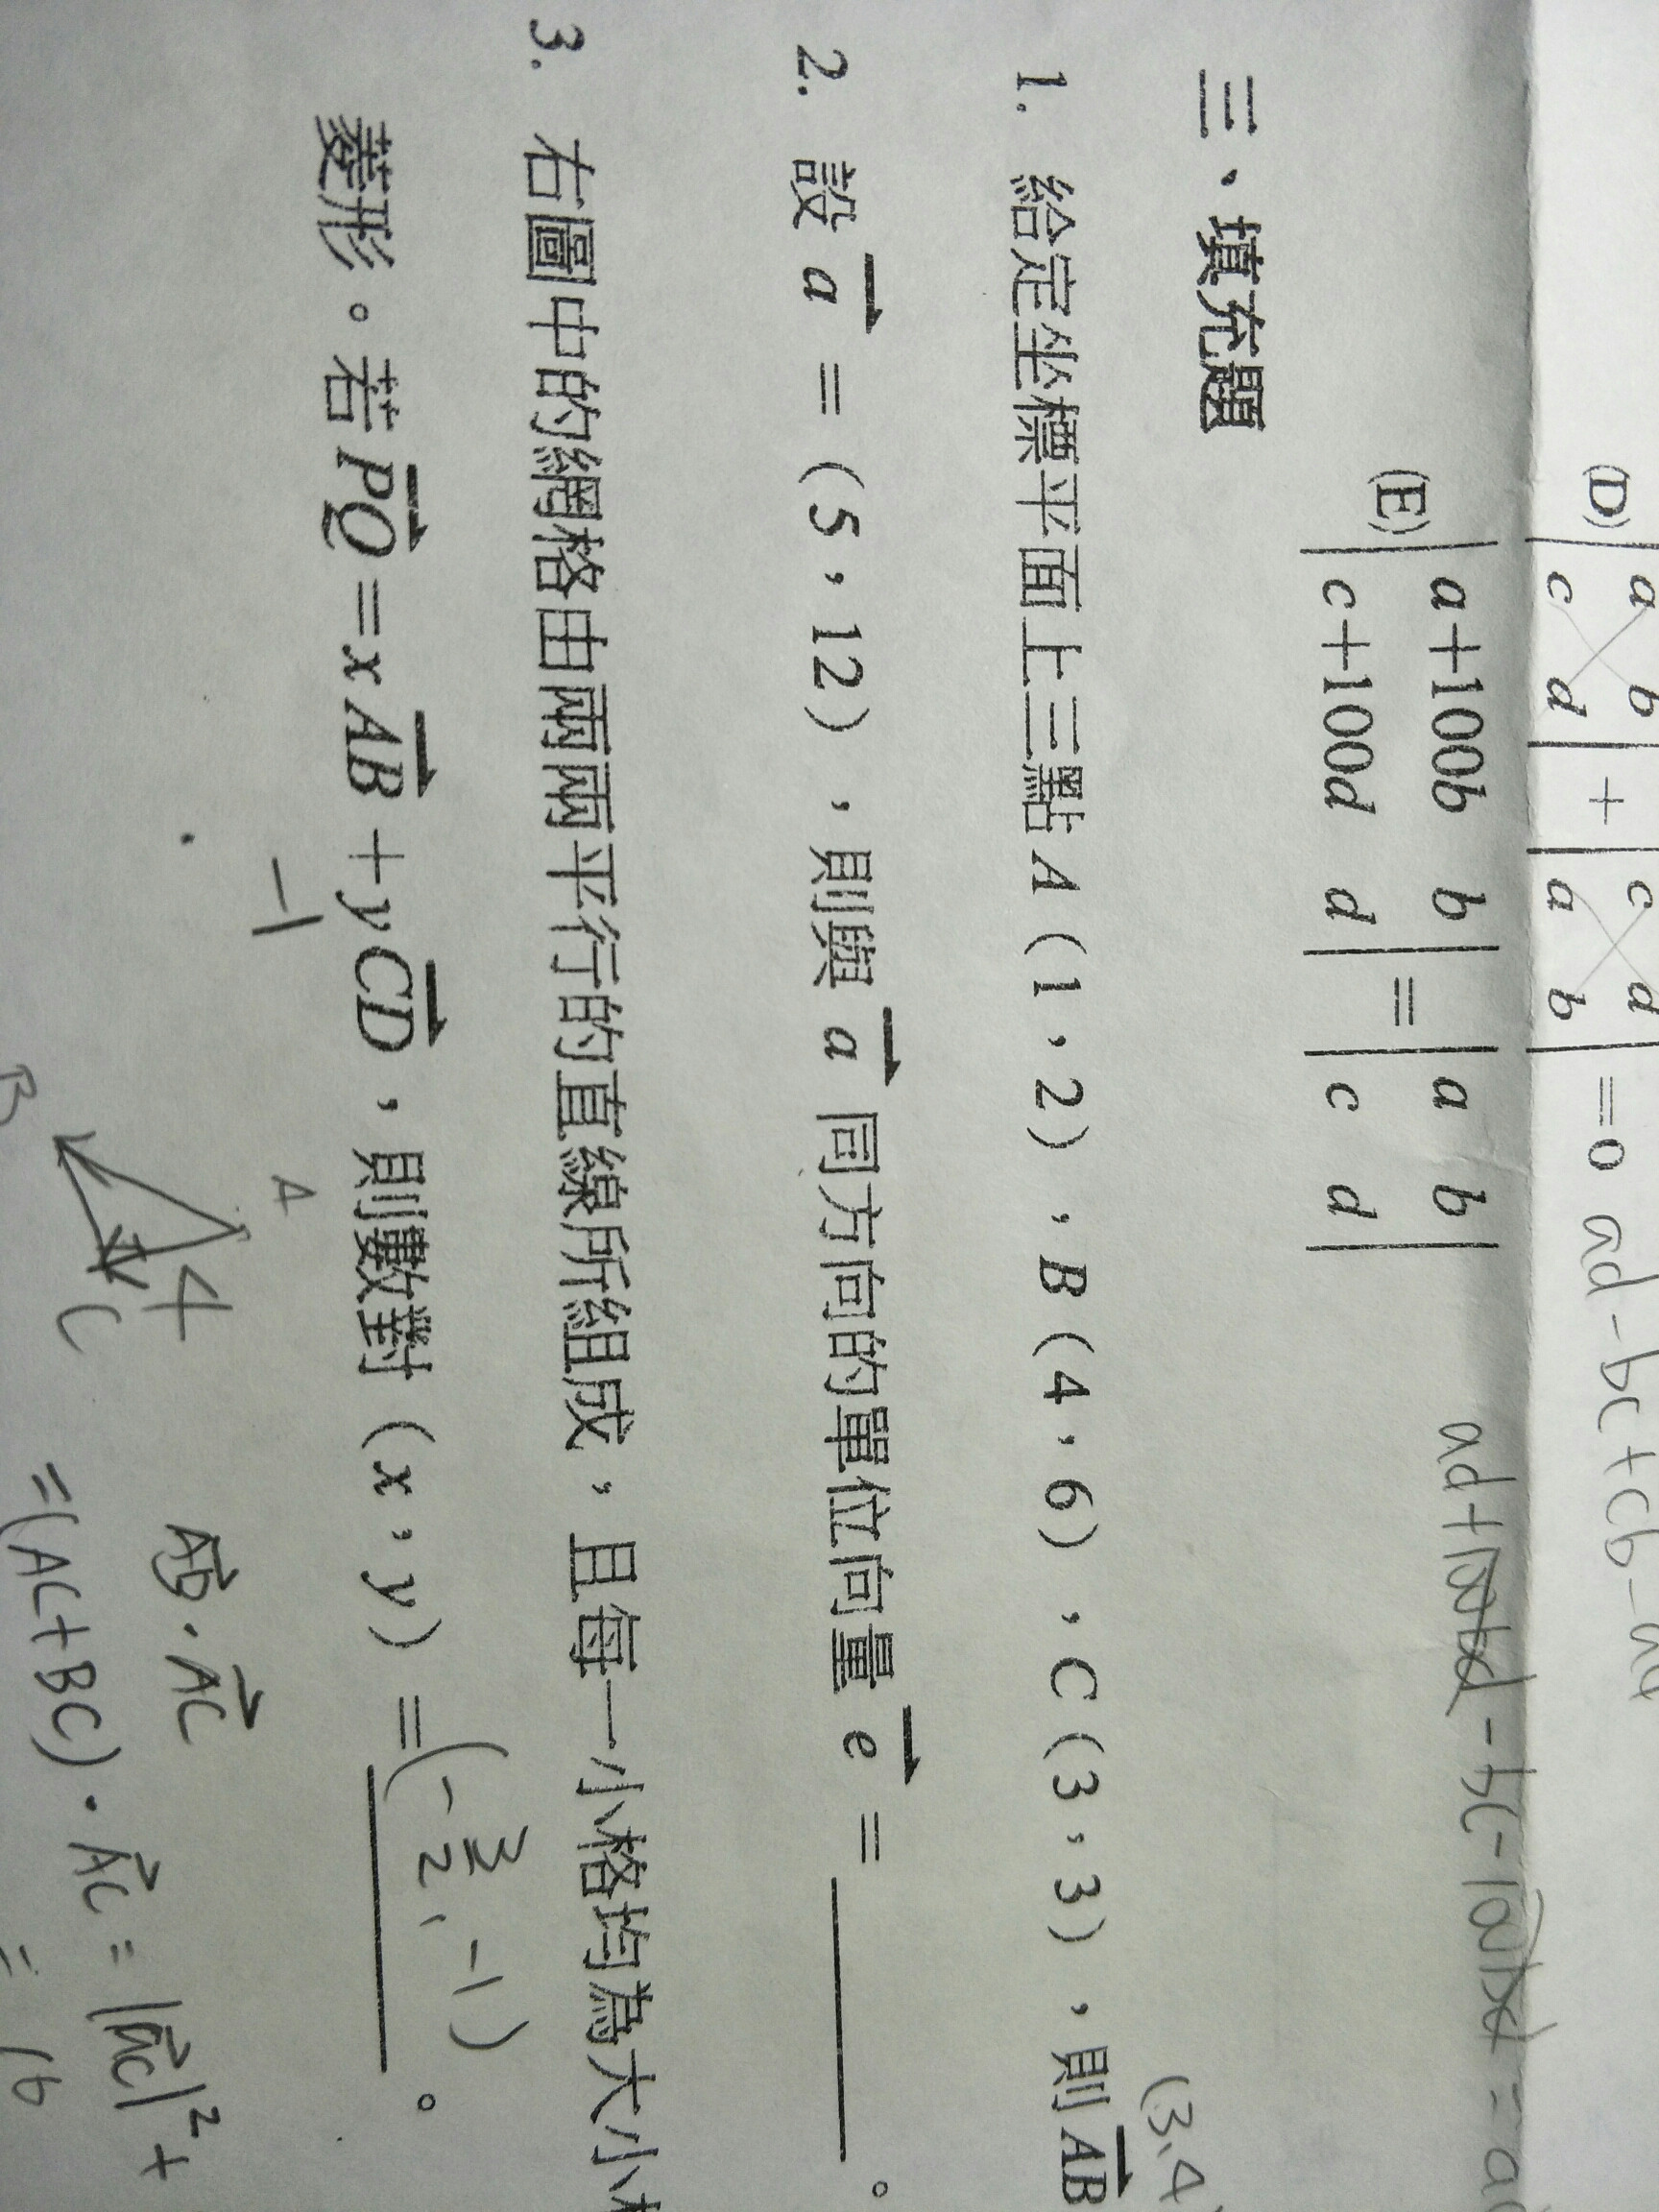 (D) | a b | + | c d | = 0 ad - bc + cb - ad
| c d | | a b |
(E) | a+100b b | = | a b |
| c+100d d | | c d |
三、填充題
(3,4
1. 給定坐標平面上三點 A (1,2),B (4,6),C (3,3),則 AB
2. 設 a = (5,12),則與 a 同方向的單位向量 e = 。
3. 右圖中的網格由兩兩平行的直線所組成,且每一小格均為大小
菱形。若 PQ = x AB + y CD,則數對 (x,y) = (-3/2, -1) 。
-1
A
4
B C
AB · AC
= (AC + BC) · AC = |AC|² +
= 16